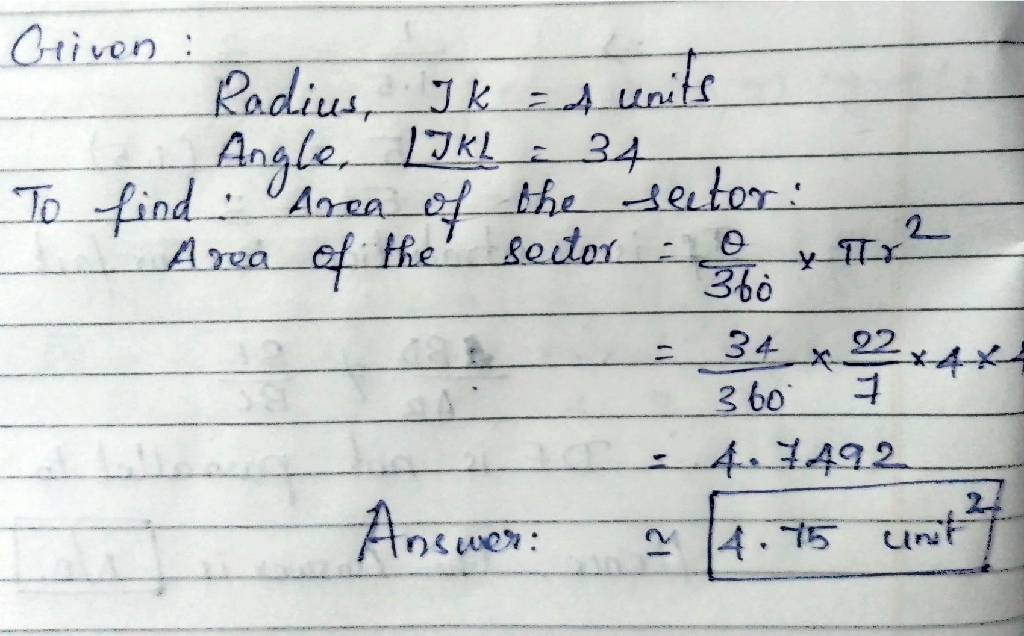 Given :
Radius, JK = 4 units
Angle, ∠JKL = 34
To find : Area of the sector :
Area of the sector = θ/360 × πr²
= 34/360 × 22/7 × 4 × 4
= 4.7492
Answer: ≃ 4.75 unit²